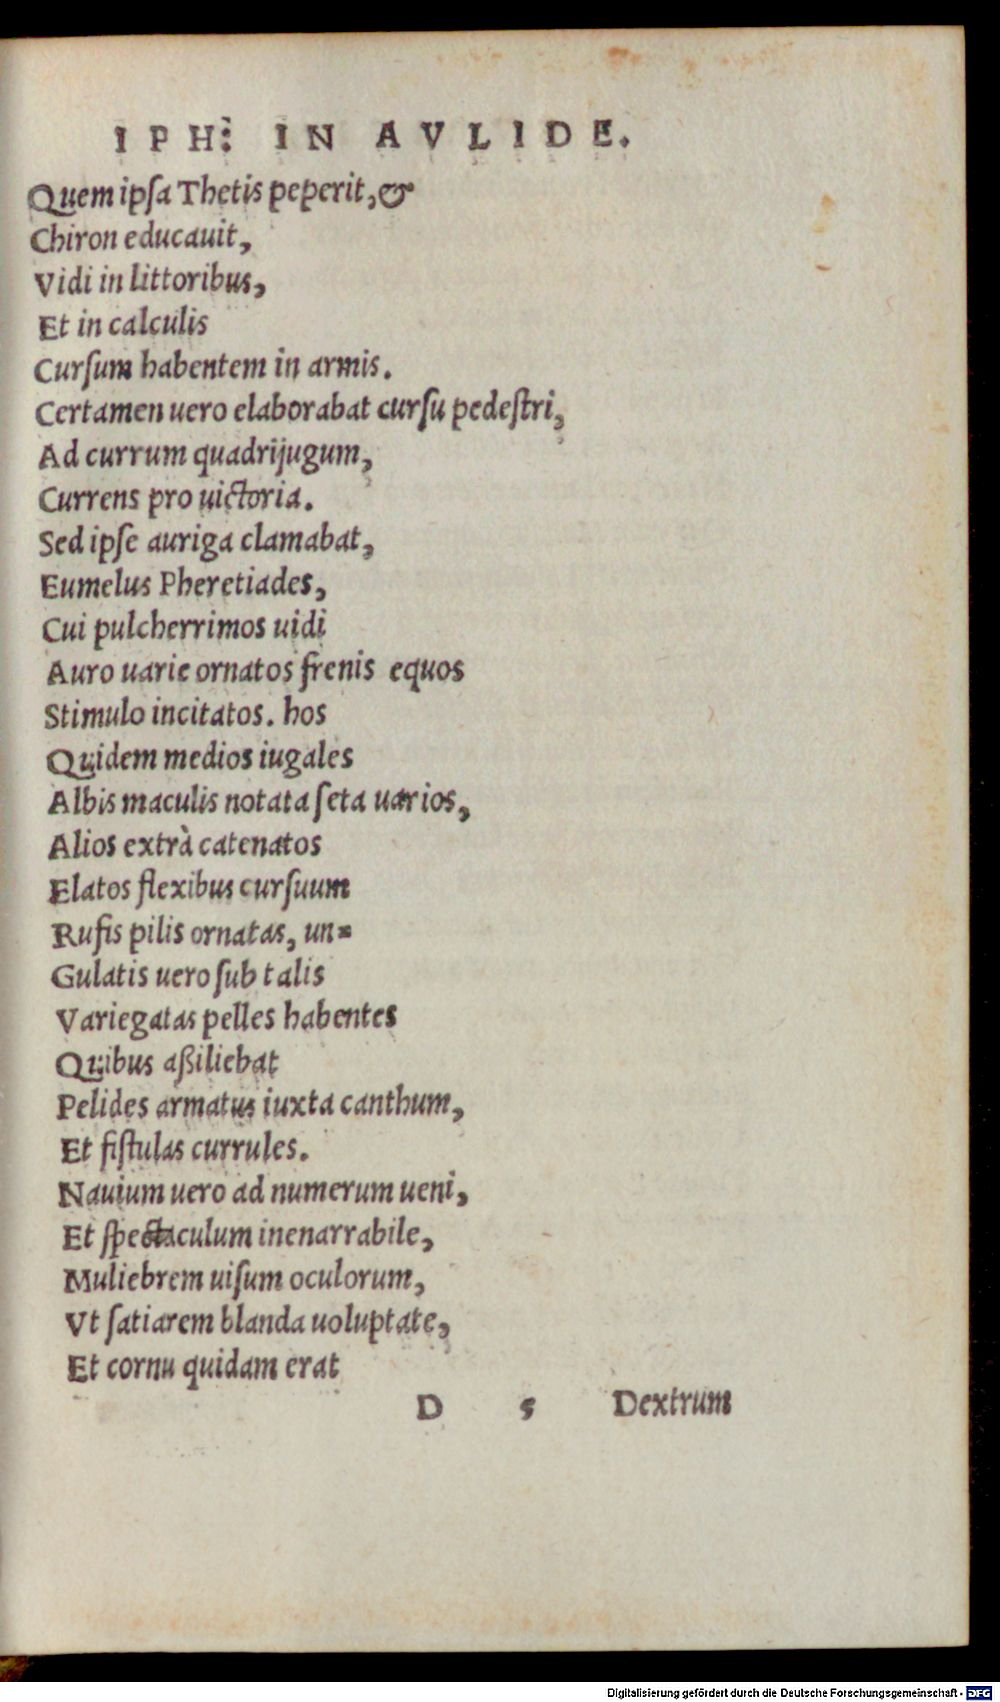 IPH: IN AVLIDE.
Quem ipſa Thetis peperit, &
Chiron educauit,
Vidi in littoribus,
Et in calculis
Curſum habentem in armis.
Certamen uero elaborabat curſu pedeſtri,
Ad currum quadrijugum,
Currens pro uictoria.
Sed ipſe auriga clamabat,
Eumelus Pheretiades,
Cui pulcherrimos uidi
Auro uarie ornatos frenis equos
Stimulo incitatos. hos
Quidem medios iugales
Albis maculis notata ſeta uarios,
Alios extrà catenatos
Elatos flexibus curſuum
Rufis pilis ornatas, un-
Gulatis uero ſub talis
Variegatas pelles habentes
Quibus aßiliebat
Pelides armatus iuxta canthum,
Et fiſtulas currules.
Nauium uero ad numerum ueni,
Et ſpectaculum inenarrabile,
Muliebrem uiſum oculorum,
Vt ſatiarem blanda uoluptate,
Et cornu quidam erat
D 5 Dextrum
Digitalisierung gefördert durch die Deutsche Forschungsgemeinschaft - DFG